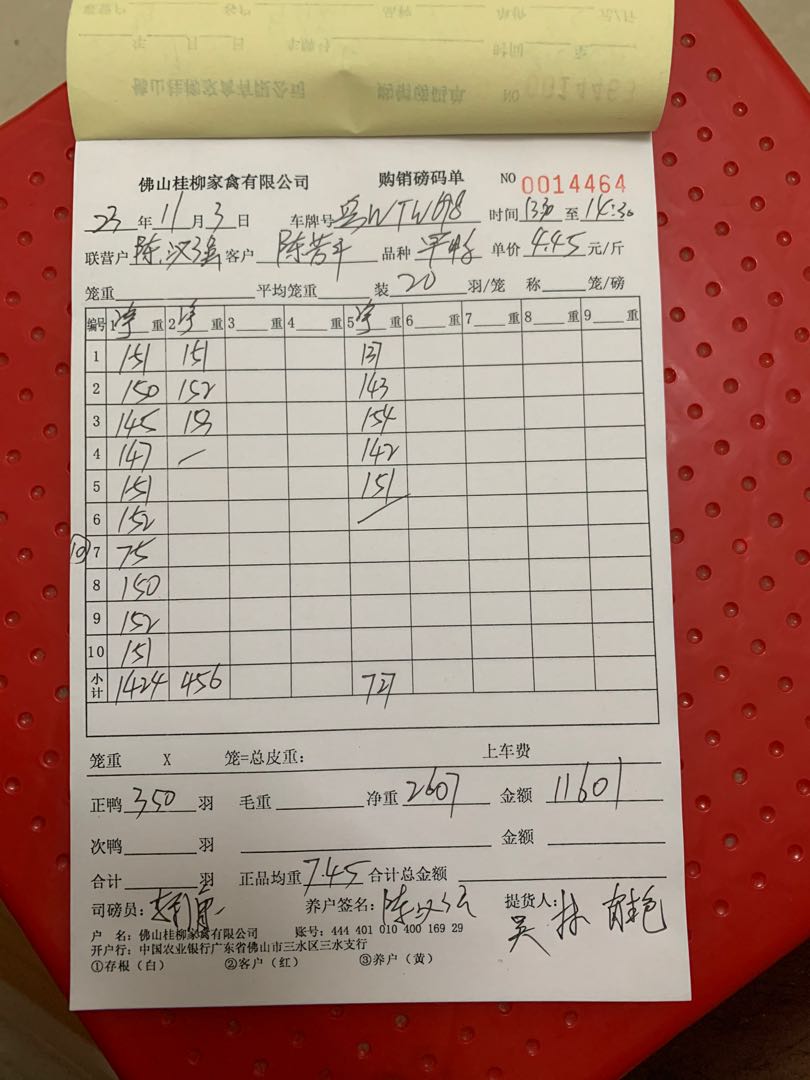 佛山桂柳家禽有限公司 购销磅码单 NO 0014464
23 年 11 月 3 日 车牌号 粤WTW698 时间 1330 至 14:30
联营户 陈汉强 客户 陈苦斗 品种 单价 4.45 元/斤
笼重 平均笼重 装 20 羽/笼 称 笼/磅
编号 1 净 重 2 净 重 3 重 4 重 5 净 重 6 重 7 重 8 重 9 重
1 151 151 137
2 150 152 143
3 145 153 154
4 147 142
5 151 151
6 152
⑩ 7 75
8 150
9 152
10 151
小计 1424 456 727
笼重 X 笼=总皮重: 上车费
正鸭 350 羽 毛重 净重 2607 金额 11601
次鸭 羽 金额
合计 羽 正品均重 7.45 合计总金额
司磅员: 养户签名: 陈汉强 提货人: 吴林
户 名: 佛山桂柳家禽有限公司 账号: 444 401 010 400 169 29
开户行: 中国农业银行广东省佛山市三水区三水支行
①存根（白） ②客户（红） ③养户（黄）